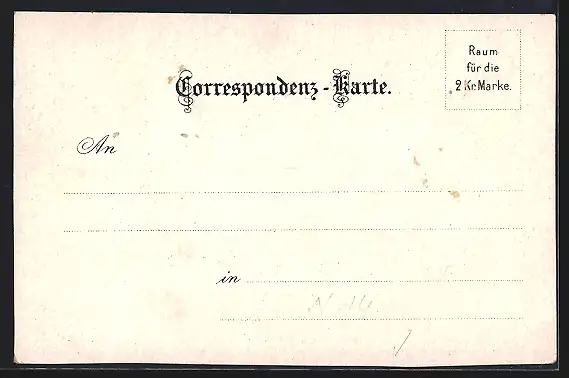 Correspondenz-Karte.
Raum
für die
2 Kr. Marke.
An
in